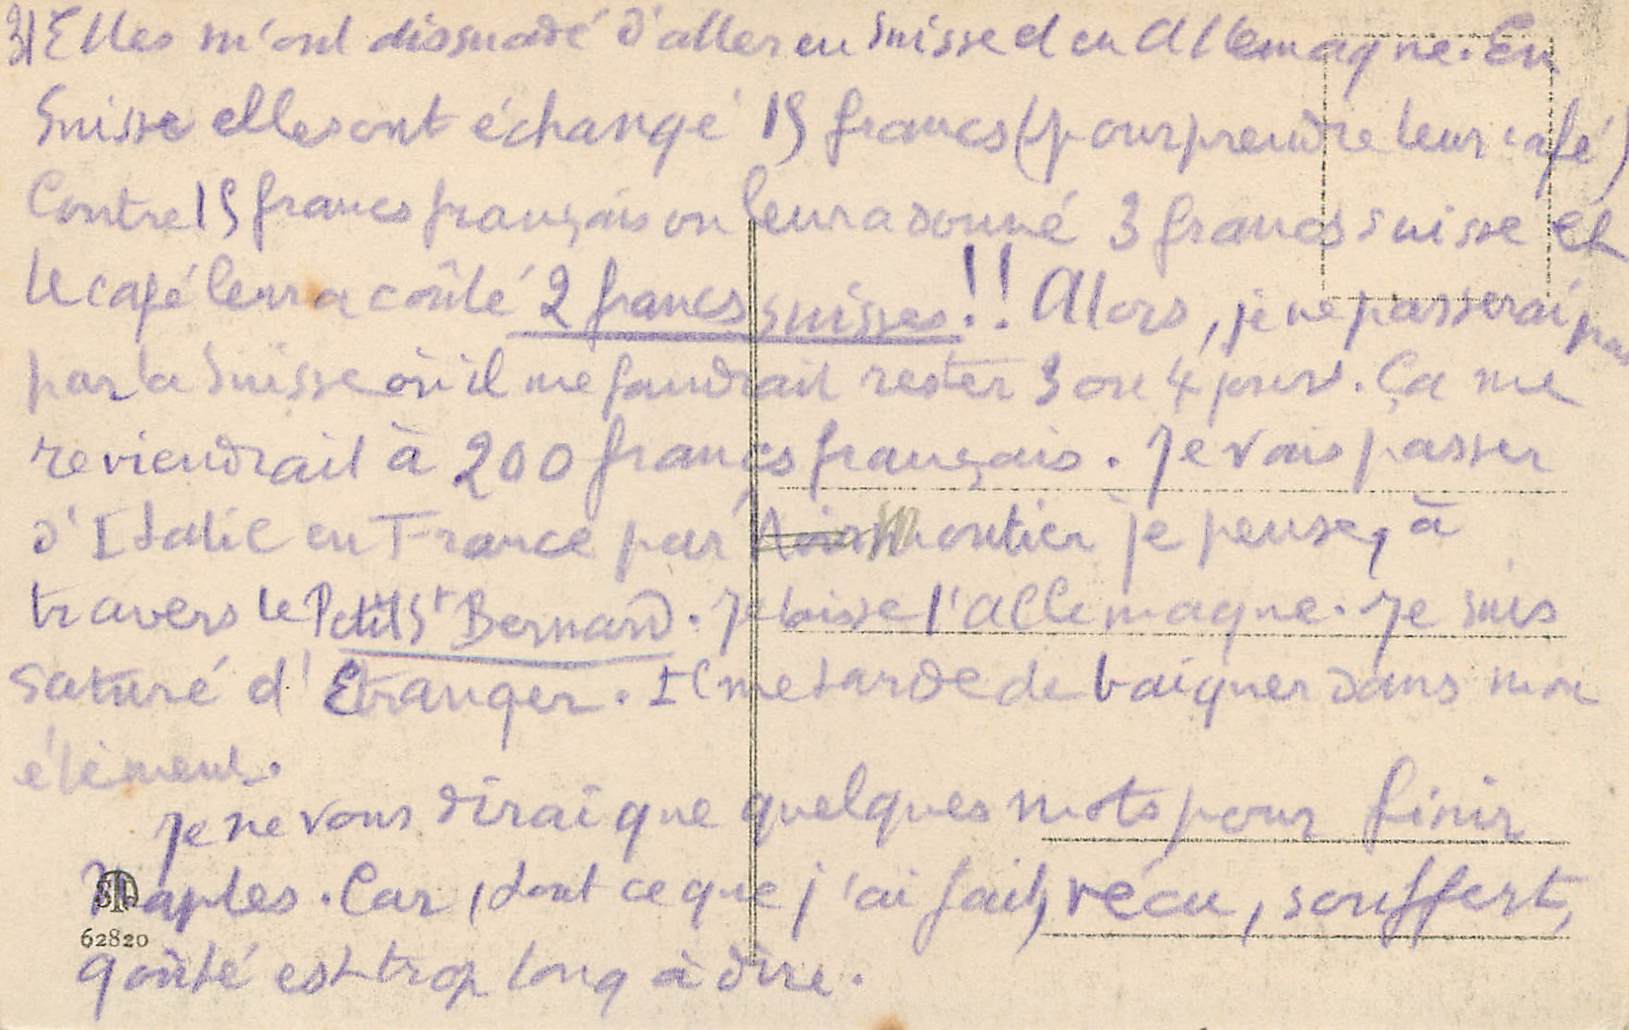 3) Elles m'ont dissuadé d'aller en Suisse et en Allemagne. En
Suisse elles ont échangé 15 francs (pour prendre leur café)
Contre 15 francs français on leur a donné 3 francs suisse et
le café leur a coûté 2 francs suisses!! Alors, je ne passerai pas
par la Suisse où il me faudrait rester 3 ou 4 jours. Ça me
reviendrait à 200 francs français. Je vais passer
d'Italie en France par Moutier je pense, à
travers le Petit St Bernard. Je laisse l'Allemagne. Je suis
saturé d'Etranger. Il me tarde de baigner dans mon
élément.
Je ne vous dirai que quelques mots pour finir
Naples. Car, tout ce que j'ai fait, vécu, souffert,
goûté est trop long à dire.
STD
62820